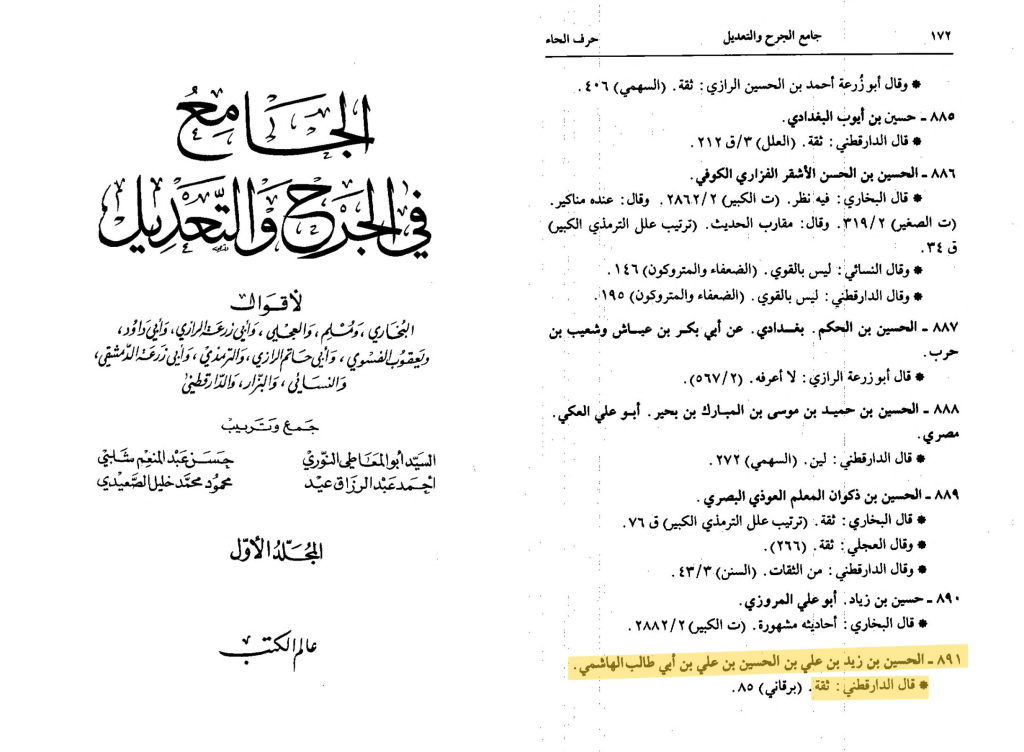 الجامع
في الجرح والتعديل
لأقوال
البخاري، ومسلم، والعجلي، وأبي زرعة الرازي، وأبي داود،
ويعقوب الفسوي، وأبي حاتم الرازي، والترمذي، وأبي زرعة الدمشقي،
والنسائي، والبزار، والدارقطني
جمع وترتيب
السيد أبو المعاطي النوري حسن عبد المنعم شلبي
احمد عبد الرزاق عيد محمود محمد خليل الصعيدي
المجلد الأول
عالم الكتب
١٧٢ جامع الجرح والتعديل حرف الحاء
* وقال أبو زُرعة أحمد بن الحسين الرازي: ثقة. (السهمي) ٤٠٦.
٨٨٥ ـ حسين بن أيوب البغدادي.
* قال الدارقطني: ثقة. (العلل) ٣/ق ٢١٢.
٨٨٦ ـ الحسين بن الحسن الأشقر الفزاري الكوفي.
* قال البخاري: فيه نظر. (ت الكبير) ٢٨٦٢/٢. وقال: عنده مناكير.
(ت الصغير) ٣١٩/٢. وقال: مقارب الحديث. (ترتيب علل الترمذي الكبير)
ق ٣٤.
* وقال النسائي: ليس بالقوي. (الضعفاء والمتروكون) ١٤٦.
* وقال الدارقطني: ليس بالقوي. (الضعفاء والمتروكون) ١٩٥.
٨٨٧ ـ الحسين بن الحكم. بغدادي. عن أبي بكر بن عياش وشعيب بن
حرب.
* قال أبو زرعة الرازي: لا أعرفه. (٥٦٧/٢).
٨٨٨ ـ الحسين بن حميد بن موسى بن المبارك بن بحير. أبو علي العكي.
مصري.
* قال الدارقطني: لين. (السهمي) ٢٧٢.
٨٨٩ ـ الحسين بن ذكوان المعلم العوذي البصري.
* قال البخاري: ثقة. (ترتيب علل الترمذي الكبير) ق ٧٦.
* وقال العجلي: ثقة. (٢٦٦).
* وقال الدارقطني: من الثقات. (السنن) ٤٣/٣.
٨٩٠ ـ حسين بن زياد. أبو علي المروزي.
* قال البخاري: أحاديثه مشهورة. (ت الكبير) ٢٨٨٢/٢.
٨٩١ ـ الحسين بن زيد بن علي بن الحسين بن علي بن أبي طالب الهاشمي.
* قال الدارقطني: ثقة. (برقاني) ٨٥.